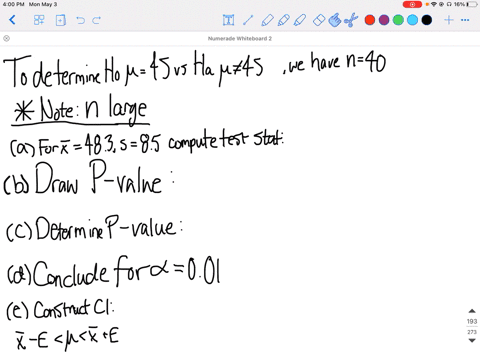 4:00 PM Mon May 3
16%
Numerade Whiteboard 2
To determine Ho μ = 45 vs Ha μ ≠ 45 , we have n = 40
* Note: n large
(a) For x̄ = 48.3, s = 8.5 compute test stat:
(b) Draw P-value:
(c) Determine P-value:
(d) Conclude for α = 0.01
(e) Construct CI:
x̄ - E < μ < x̄ + E
193
273